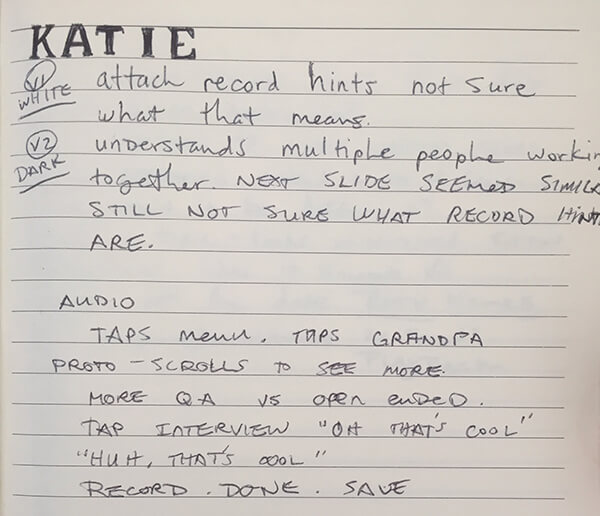 KATIE
V1 attach record hints not sure
WHITE what that means.
V2 understands multiple people workin
DARK together. NEXT SLIDE SEEMED SIMILA
STILL NOT SURE WHAT RECORD HINT
ARE.
AUDIO
TAPS menu. TAPS GRANDPA
PROTO - SCROLLS to SEE MORE.
MORE QA VS OPEN ENDED.
TAP INTERVIEW "OH THAT'S COOL"
"HUH, THAT'S COOL"
RECORD. DONE. SAVE